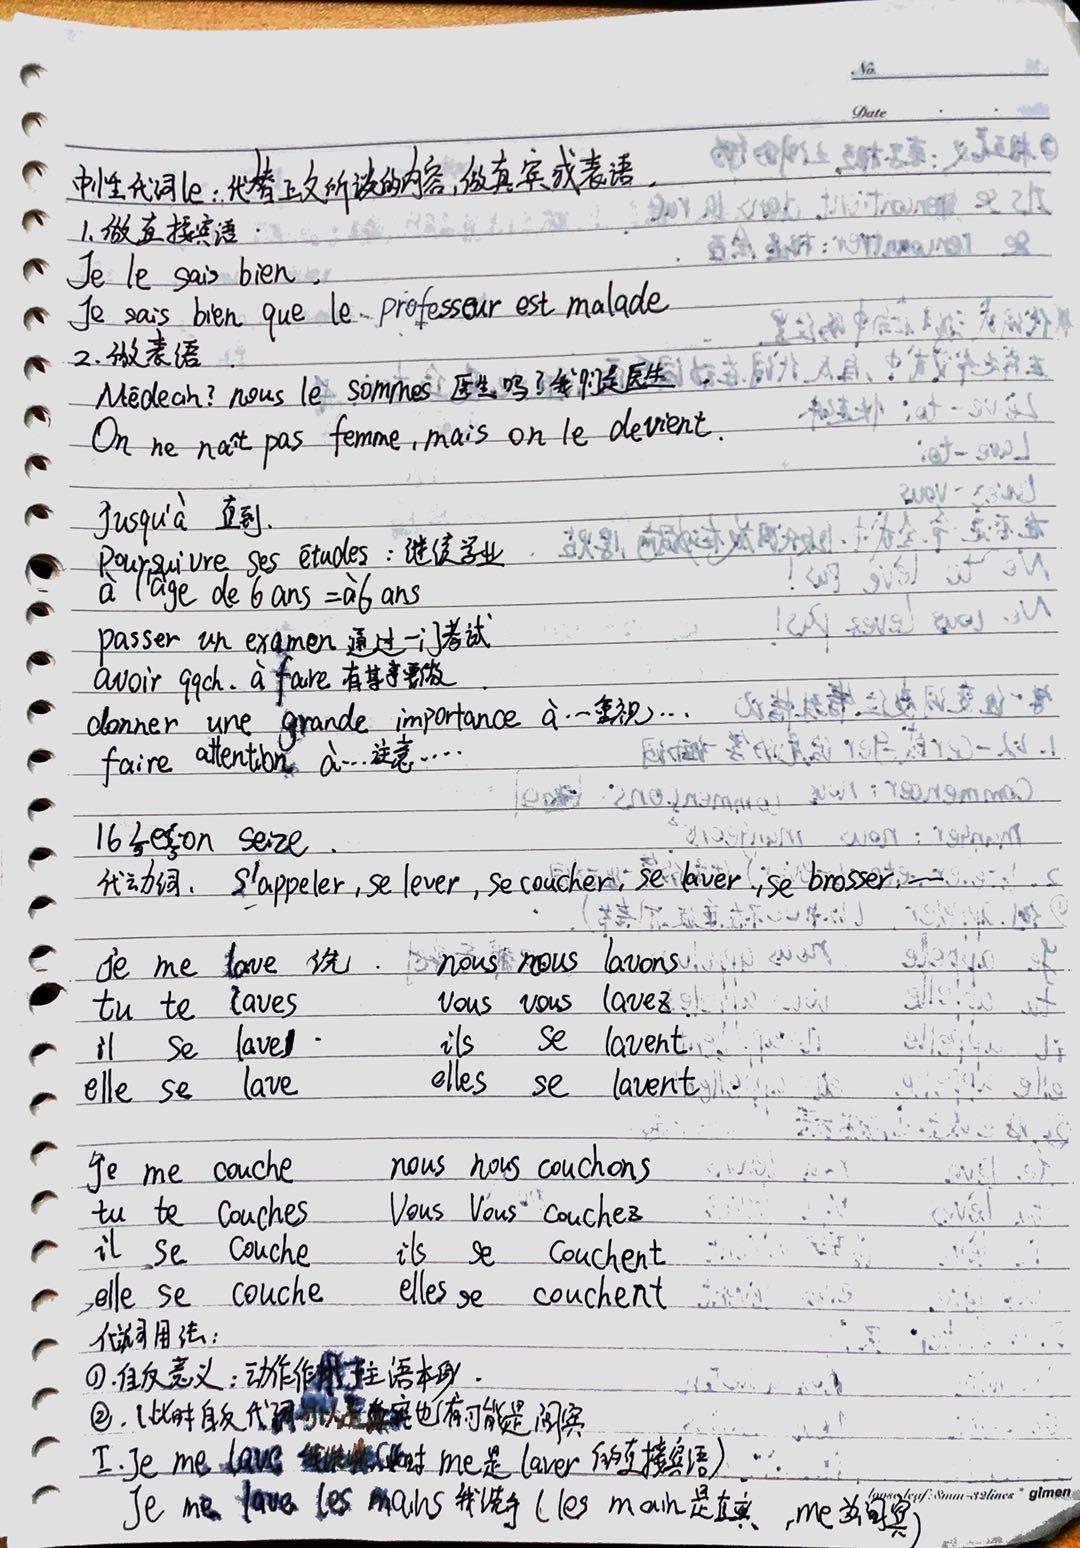 No.
Date
中性代词le：代替上文所谈的内容，做直宾或表语．
1．做直接宾语．
Je le sais bien．
Je sais bien que le professeur est malade
2．做表语．
Médecin? nous le sommes 医生吗？我们是医生．
On ne naît pas femme, mais on le devient.
Jusqu'à 直到.
Poursuivre ses études：继续学业
à l'âge de 6 ans = à 6 ans
passer un examen 通过一门考试
avoir qqch. à faire 有某事要做
donner une grande importance à … 重视 …
faire attention à … 注意 …
16 Leçon seize．
代动词． S'appeler, se lever, se coucher, se laver, se brosser …
je me lave 洗． nous nous lavons
tu te laves vous vous lavez
il se lave ils se lavent
elle se lave elles se lavent
je me couche nous nous couchons
tu te couches Vous Vous couchez
il se couche ils se couchent
elle se couche elles se couchent
代词用法：
①．自反意义：动作作用于主语本身．
②．(此时自反代词可以是直宾也有可能是间宾
I．Je me lave (此时 me是 laver 的直接宾语)
Je me lave les mains 我洗手 (les main 是直宾，me为间宾)
loose leaf: 8mm-32lines glmen